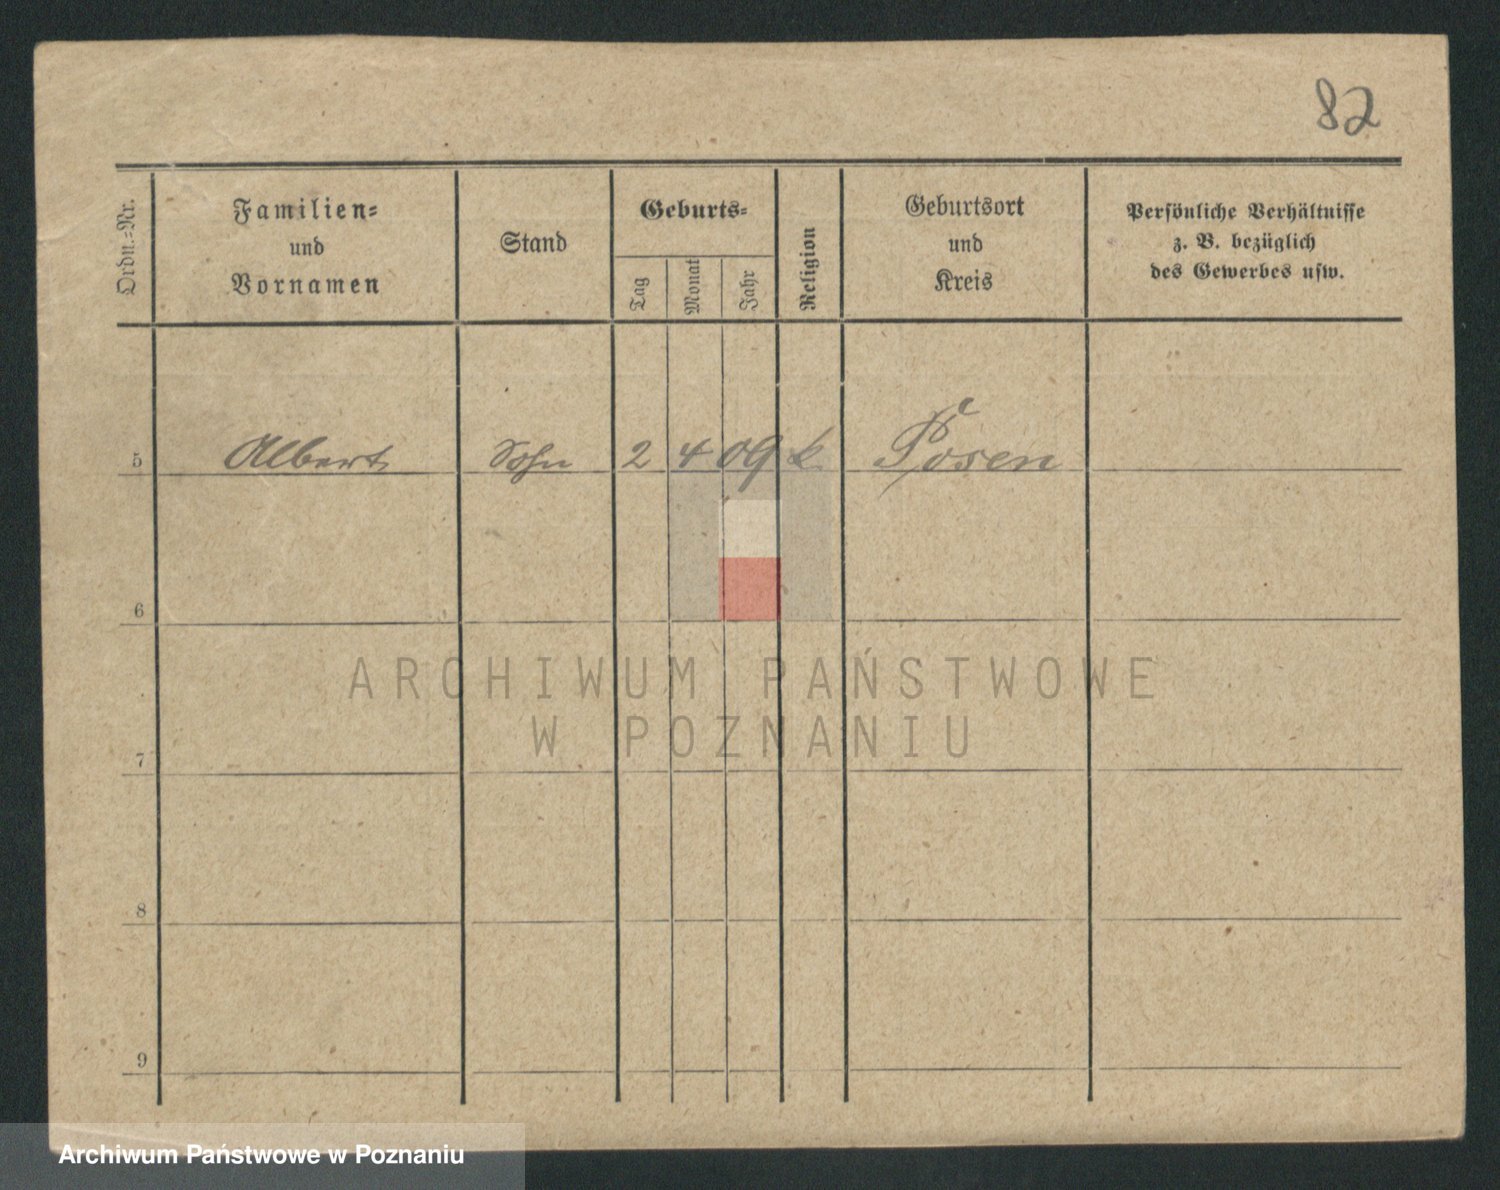 82
Ordn.-Nr.
Familien-
und
Vornamen
Stand
Geburts-
Tag
Monat
Jahr
Religion
Geburtsort
und
Kreis
Persönliche Verhältnisse
z. B. bezüglich
des Gewerbes usw.
5 Albert Sohn 2 4 09 k Posen
6
7
8
9
ARCHIWUM PAŃSTWOWE
W POZNANIU
Archiwum Państwowe w Poznaniu